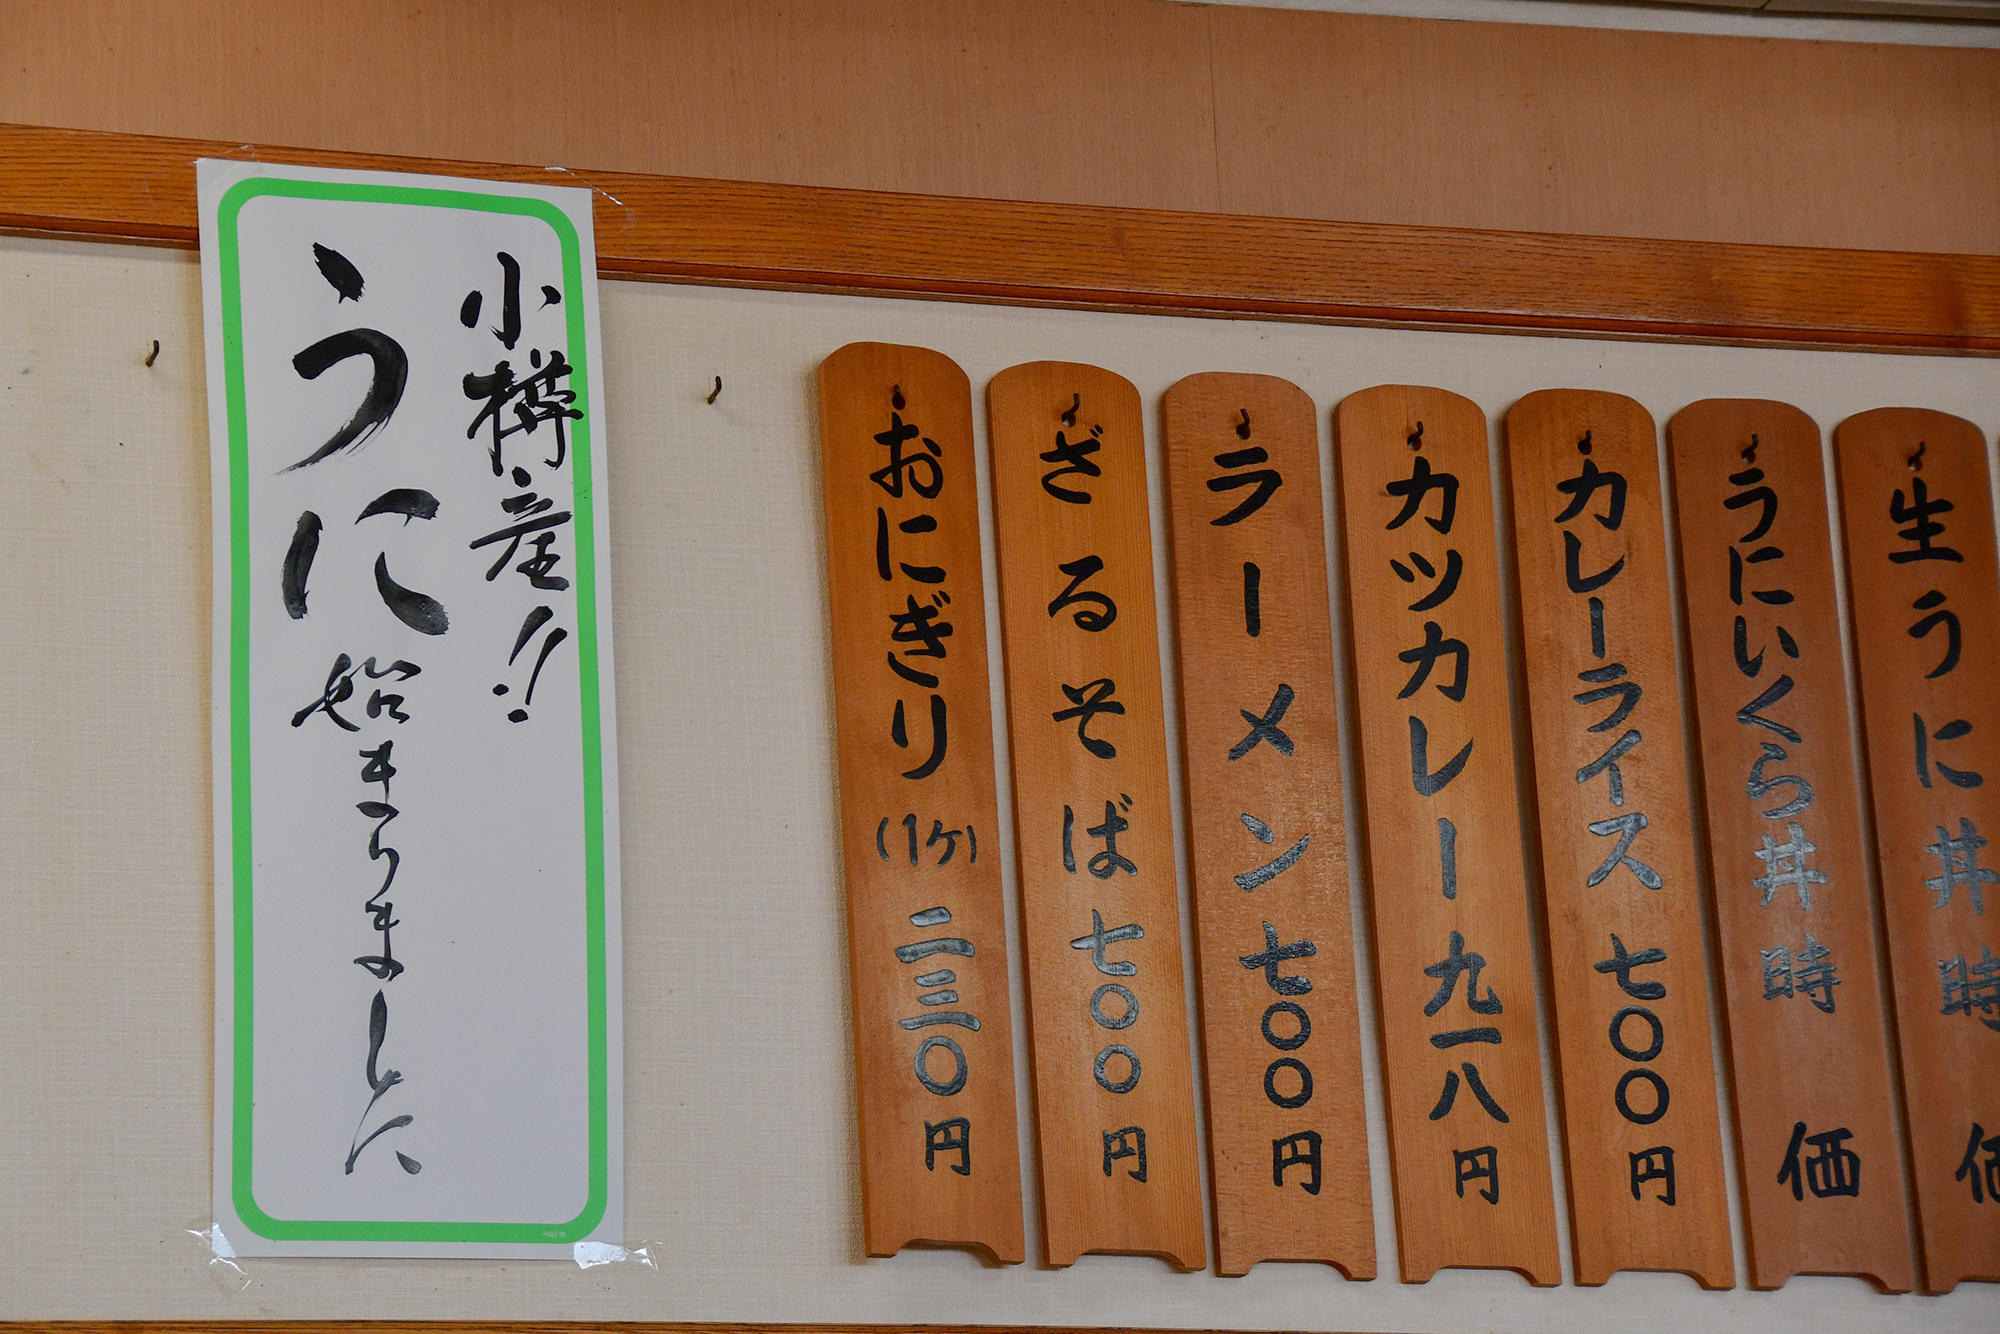 小樽産!!
うに始まりました
生うに丼時価
うにいくら丼時価
カレーライス七〇〇円
カツカレー九一八円
ラーメン七〇〇円
ざるそば七〇〇円
おにぎり(1ヶ)二三〇円